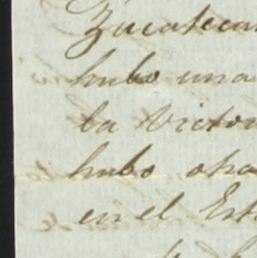 Zacatecas
hubo una
la Victor
hubo otra
en el Est